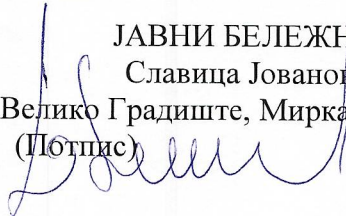 ЈАВНИ БЕЛЕЖН
Славица Јованов
Велико Градиште, Мирка
(Потпис)